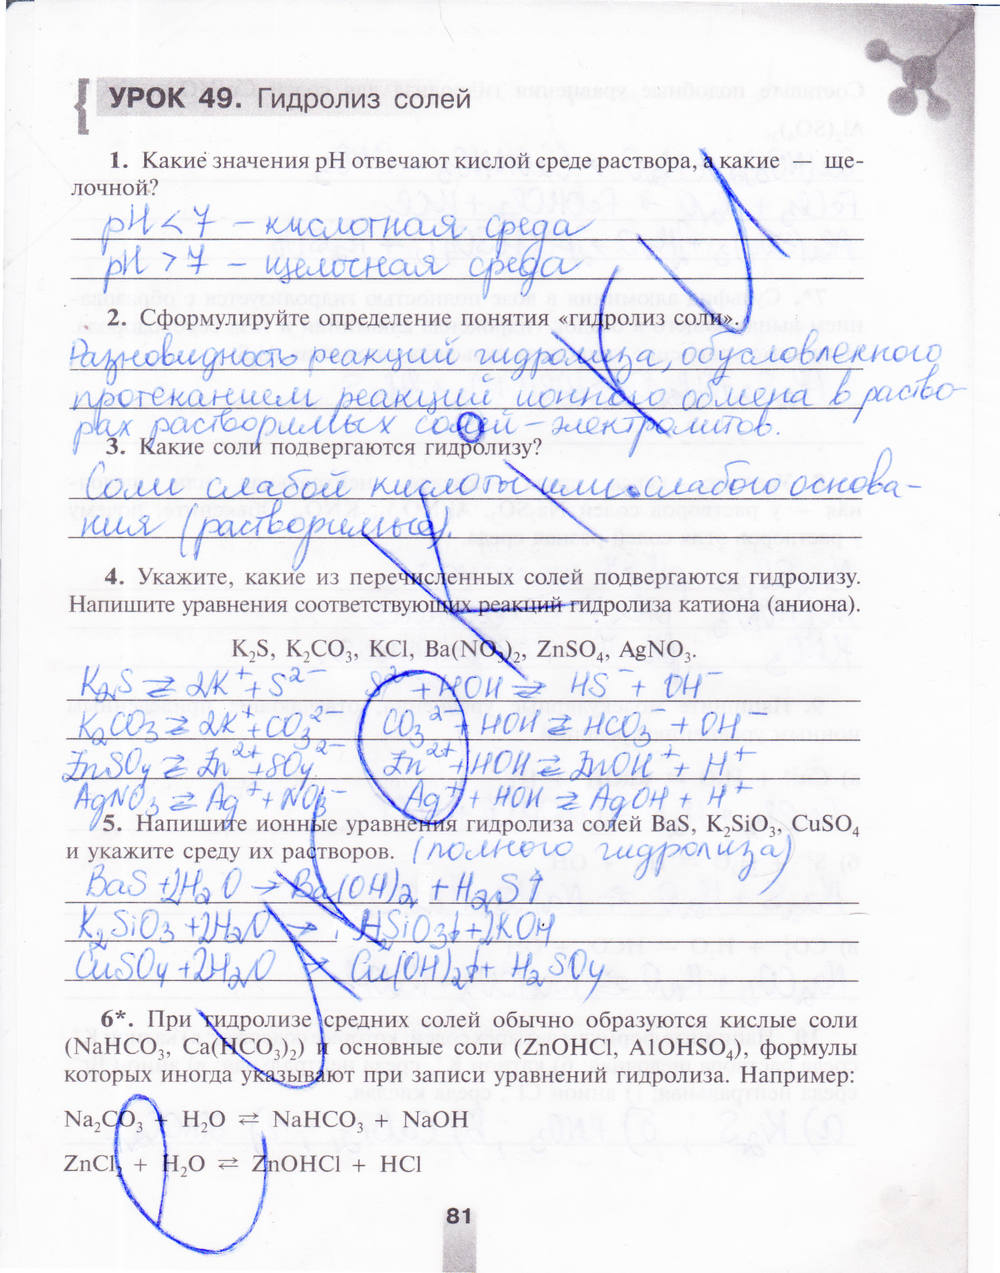 УРОК 49. Гидролиз солей
1. Какие значения pH отвечают кислой среде раствора, а какие — ще-
лочной?
pH < 7 – кислотная среда
pH > 7 – щелочная среда
2. Сформулируйте определение понятия «гидролиз соли».
Разновидность реакций гидролиза, обусловленного
протеканием реакций ионного обмена в раство-
рах растворимых солей – электролитов.
3. Какие соли подвергаются гидролизу?
Соли слабой кислоты или слабого основа-
ния (растворимые).
4. Укажите, какие из перечисленных солей подвергаются гидролизу.
Напишите уравнения соответствующих реакций гидролиза катиона (аниона).
K₂S, K₂CO₃, KCl, Ba(NO₃)₂, ZnSO₄, AgNO₃.
K₂S ⇄ 2K⁺ + S²⁻ S²⁻ + HOH ⇄ HS⁻ + OH⁻
K₂CO₃ ⇄ 2K⁺ + CO₃²⁻ CO₃²⁻ + HOH ⇄ HCO₃⁻ + OH⁻
ZnSO₄ ⇄ Zn²⁺ + SO₄²⁻ Zn²⁺ + HOH ⇄ ZnOH⁺ + H⁺
AgNO₃ ⇄ Ag⁺ + NO₃⁻ Ag⁺ + HOH ⇄ AgOH + H⁺
5. Напишите ионные уравнения гидролиза солей BaS, K₂SiO₃, CuSO₄
и укажите среду их растворов. (полного гидролиза)
BaS + 2H₂O → Ba(OH)₂ + H₂S↑
K₂SiO₃ + 2H₂O → H₂SiO₃↓ + 2KOH
CuSO₄ + 2H₂O → Cu(OH)₂↓ + H₂SO₄
6*. При гидролизе средних солей обычно образуются кислые соли
(NaHCO₃, Ca(HCO₃)₂) и основные соли (ZnOHCl, AlOHSO₄), формулы
которых иногда указывают при записи уравнений гидролиза. Например:
Na₂CO₃ + H₂O ⇄ NaHCO₃ + NaOH
ZnCl₂ + H₂O ⇄ ZnOHCl + HCl
81